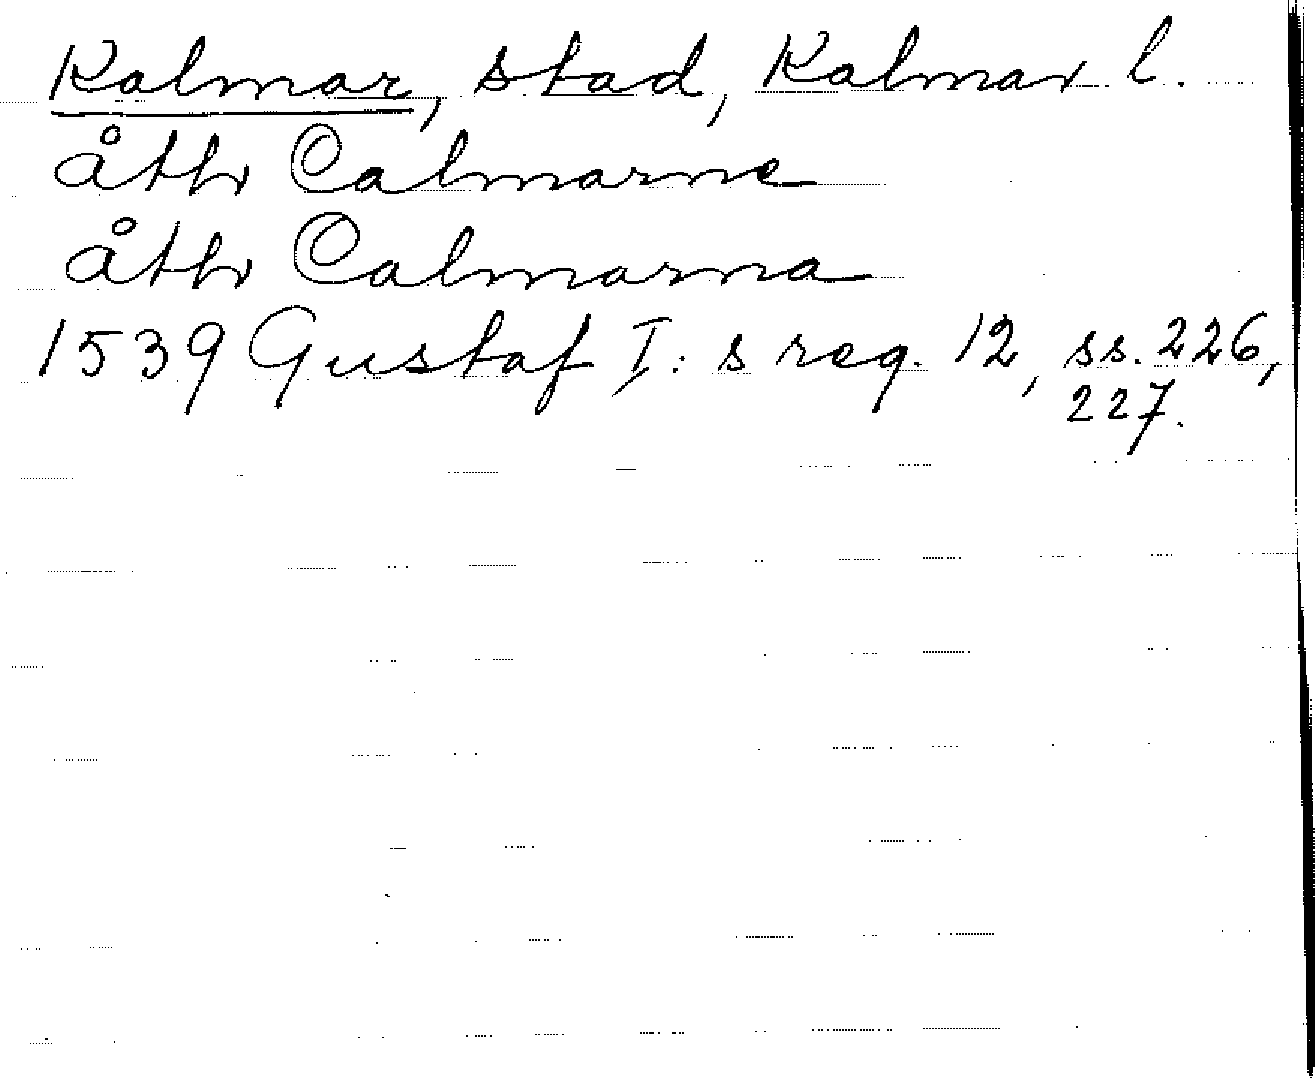 Kalmar, stad, Kalmar l.
åthr Calmarne
åthr Calmarna
1539 Gustaf I:s reg. 12, ss. 226,
227.